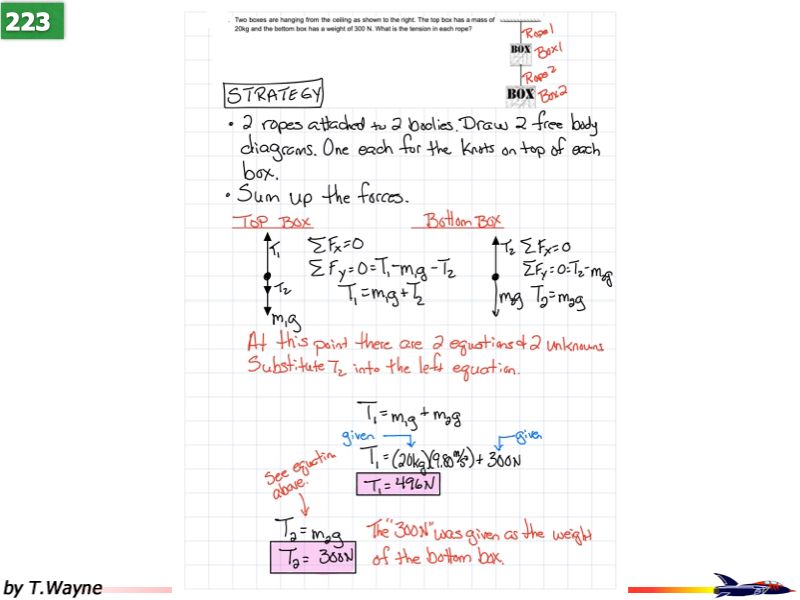 223
. Two boxes are hanging from the ceiling as shown to the right. The top box has a mass of
20kg and the bottom box has a weight of 300 N. What is the tension in each rope?
Rope 1
BOX Box 1
Rope 2
BOX Box 2
STRATEGY
• 2 ropes attached to 2 bodies. Draw 2 free body
diagrams. One each for the knots on top of each
box.
• Sum up the forces.
TOP BOX
T₁
T₂
m₁g
ΣFx=0
ΣFy=0=T₁-m₁g-T₂
T₁=m₁g+T₂
Bottom Box
T₂
m₂g
ΣFx=0
ΣFy=0=T₂-m₂g
T₂=m₂g
At this point there are 2 equations & 2 unknowns
Substitute T₂ into the left equation.
T₁=m₁g+m₂g
given
given
T₁=(20kg)(9.80 m/s²)+300N
T₁=496N
See equation
above.
T₂=m₂g
T₂=300N
The "300N" was given as the weight
of the bottom box.
by T.Wayne